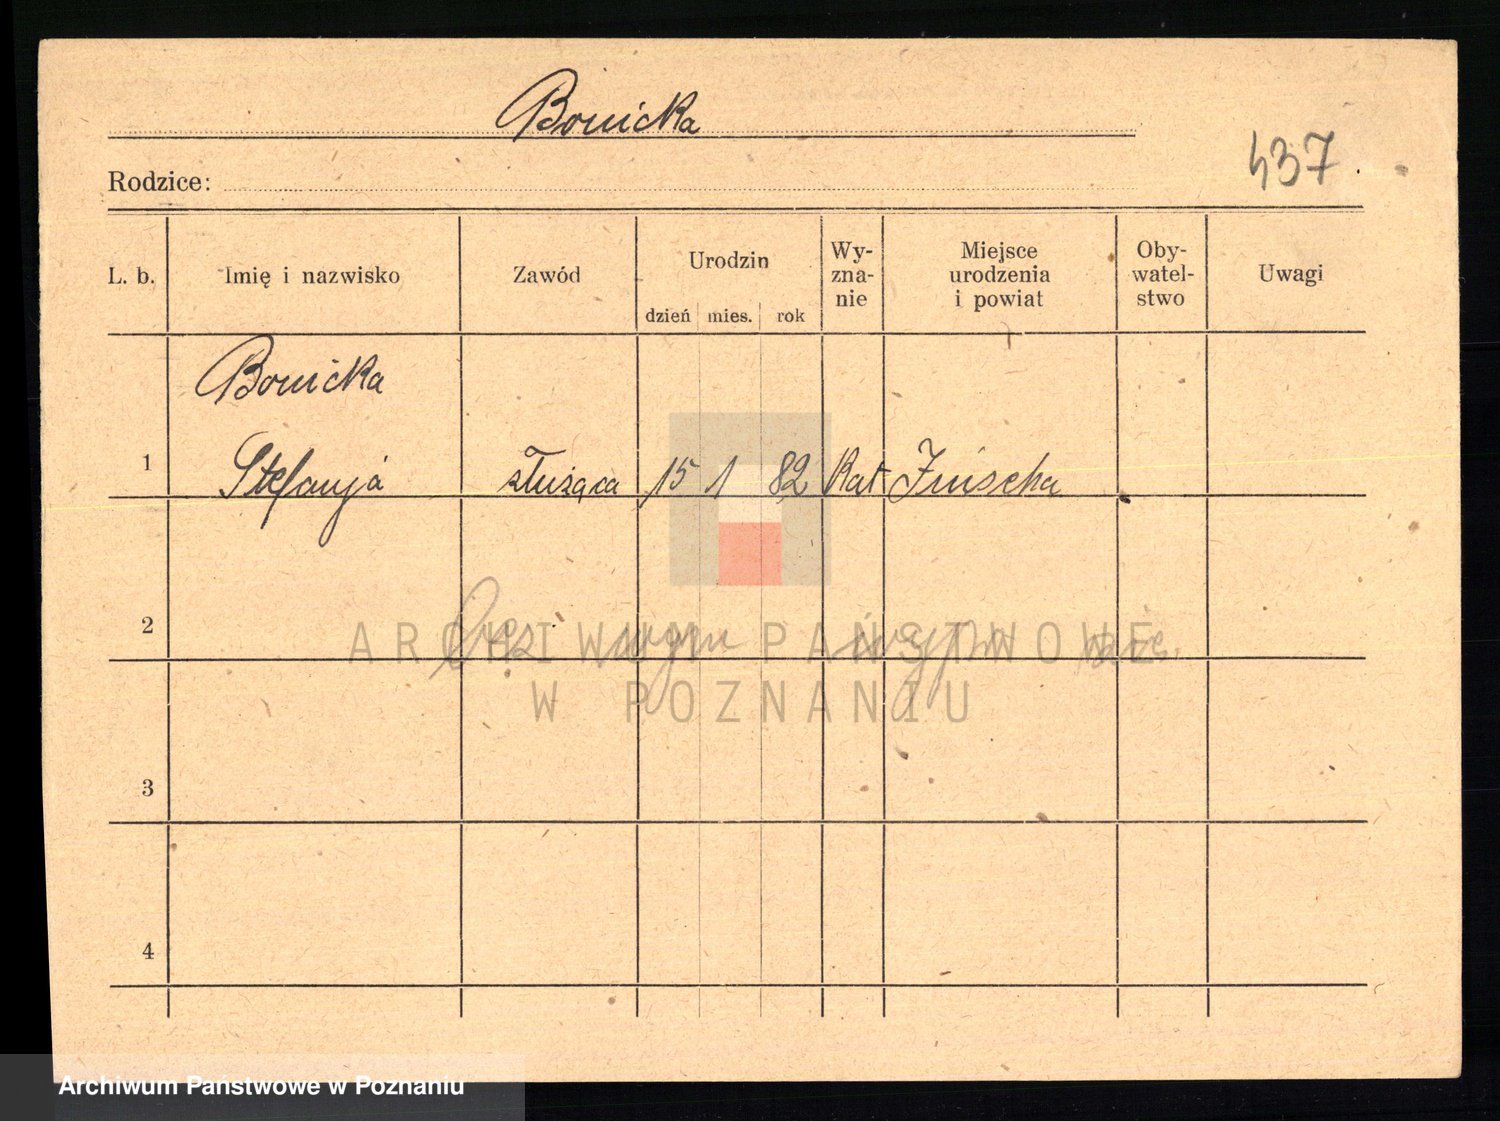 Bonicka
437
Rodzice:
L. b. Imię i nazwisko Zawód Urodzin dzień mies. rok Wy-zna-nie Miejsce urodzenia i powiat Oby-watel-stwo Uwagi
Bonicka
1 Stefanja służąca 15 1 82 Kat
2
ARCHIWUM PAŃSTWOWE
W POZNANIU
3
4
Archiwum Państwowe w Poznaniu